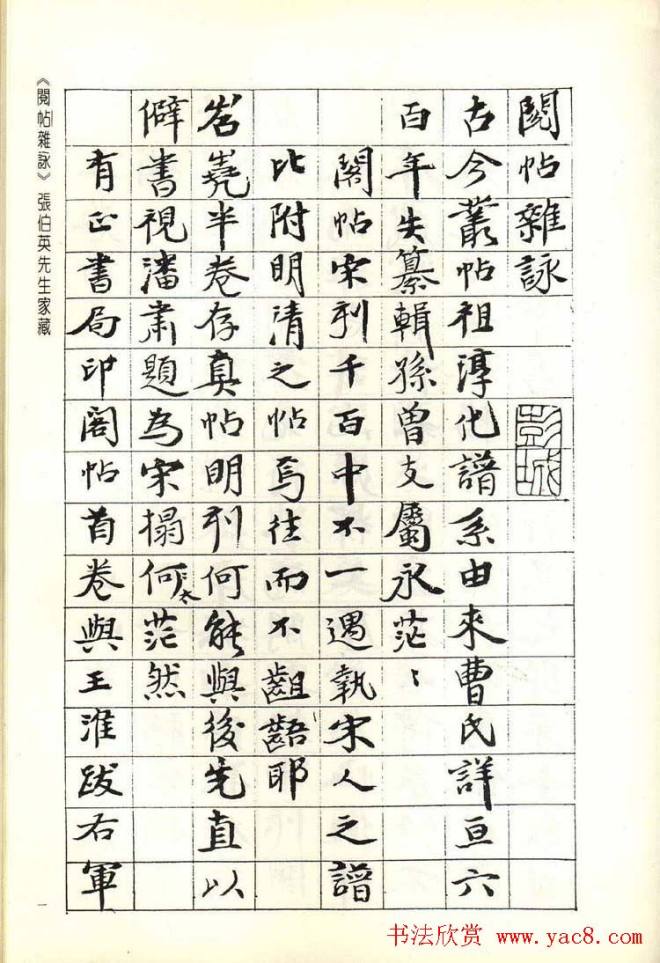 閱帖雜詠
彭城
古今叢帖祖淳化譜系由來曹氏詳亘六
百年失纂輯孫曾支屬永茫〻
閣帖宋刊千百中不一遇執宋人之譜
比附明清之帖焉往而不齟齬耶
岧嶤半卷存真帖明刊何能與後先直以
僻書視潘肅題為宋搨何太茫然
有正書局印閣帖首卷與王淮跋右軍
《閱帖雜詠》張伯英先生家藏
一
书法欣赏 www.yac8.com